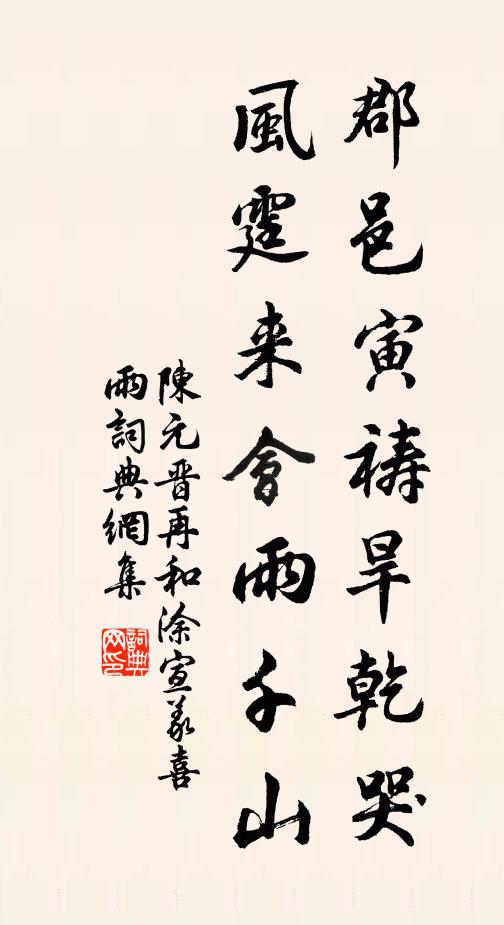 郡邑寅禱旱乾哭
風霆来會雨千山
陳元晋再和涂宣義喜
雨詞典網集
詞典网印